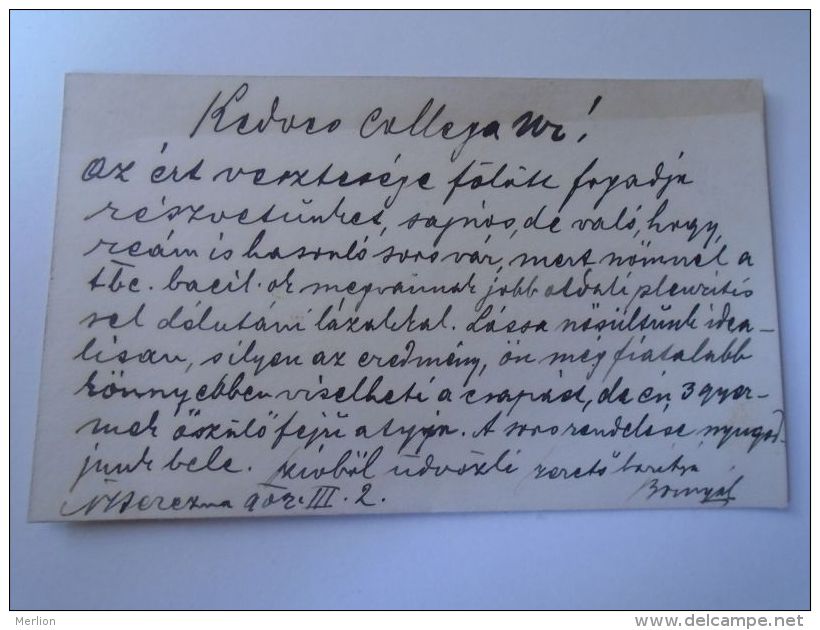 Kedves Collega Úr!
Az ért vesztesége fölött fogadja
részvétünket, sajnos, de való, hogy
reám is hasonló sors vár, mert nőmnél a
tbc. bacil.ok megvannak jobb oldali pleuritis
sel délutáni lázakkal. Lássa nősültünk idea-
lisan, s ilyen az eredmény, ön még fiatalabb
könnyebben viselheti a csapást, de én, 3 gyer-
mek őszülő fejű atyja. A sors rendelése, nyugod-
junk bele. Szívből üdvözli szerető barátja
NBerezna 902. III. 2.
Merlion
www.delcampe.net